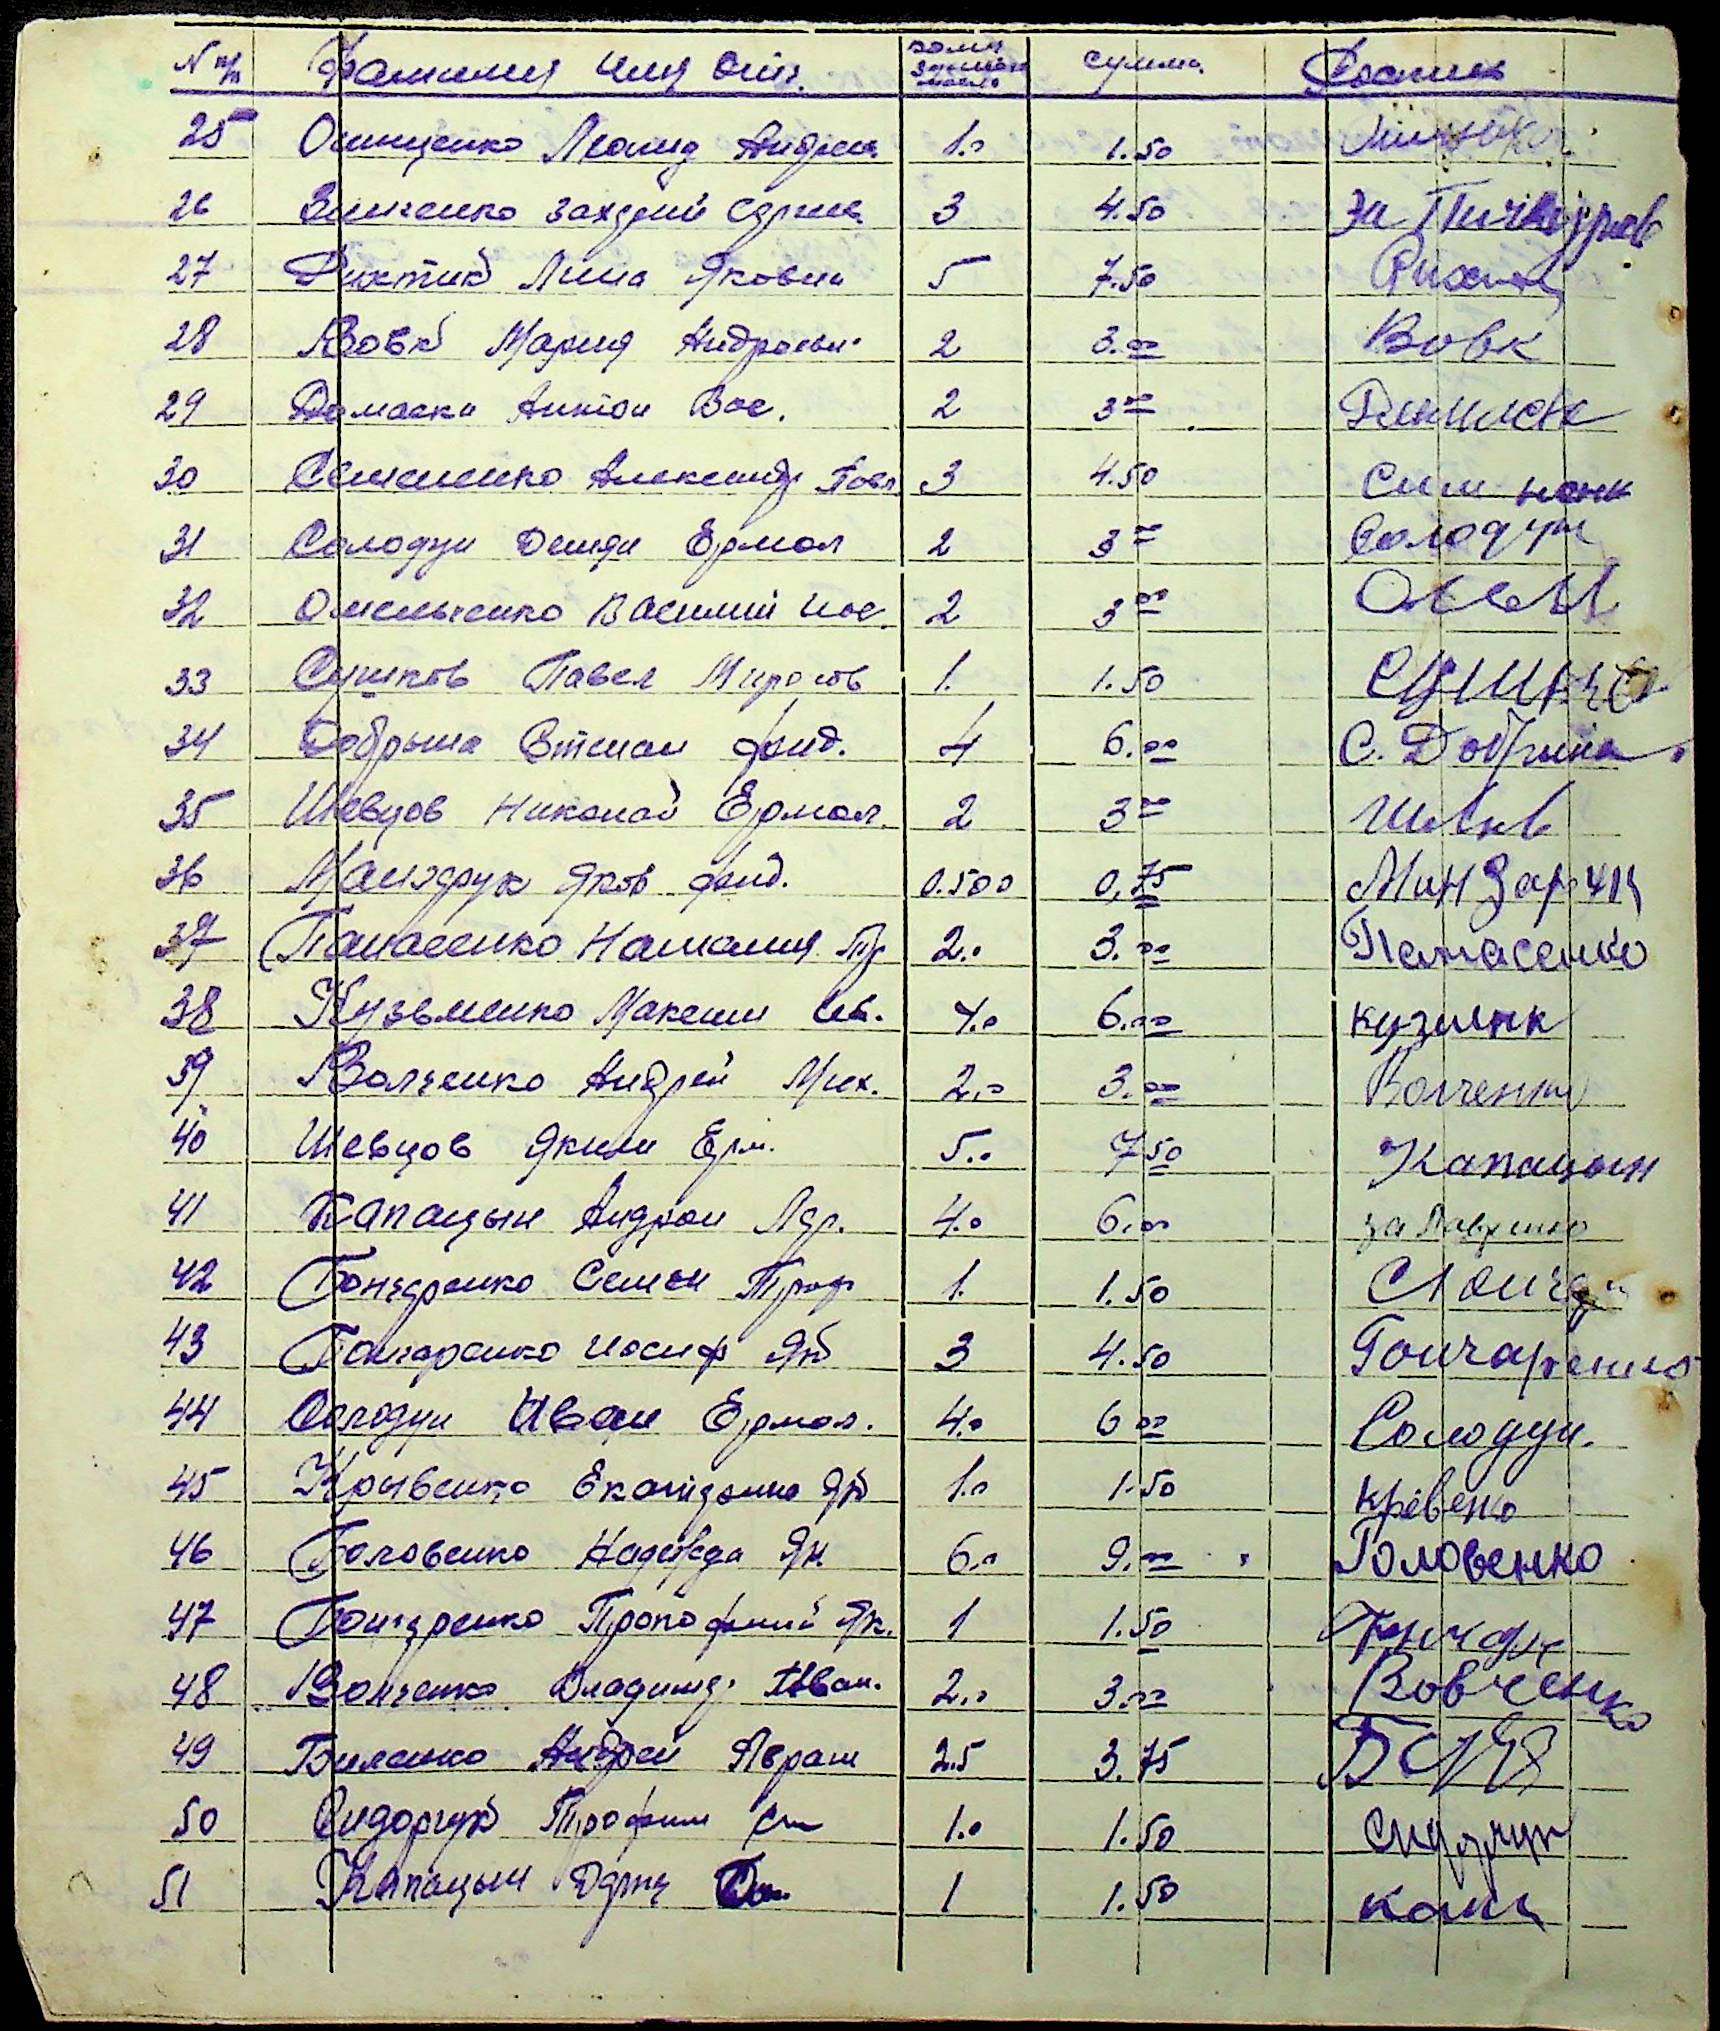 N п/п Фамилия Имя Отч. сумма Роспись
25 Онищенко Леонид Андреев. 1.0 1.50
26 Зинченко Захарий Сергеев. 3 4.50 за Пичкуров
27 Рихтик Яковна 5 7.50
28 Вовк Мария Андроновн. 2 3.00 Вовк
29 Домаски Антон Вас. 2 3.00
30 Семененко Александр Павл 3 4.50
31 Солодун Демян Ермол 2 3.00 Солодун
32 Омельченко Василий Иос. 2 3.00
33 Сушков Павел Миронов 1. 1.50
34 Добрыша Степан Фоид. 4 6.00 С. Добрыша
35 Шевцов Николай Ермол. 2 3.00
36 Яков Фоид. 0.500 0,75
37 Панасенко Наталия Гр 2.0 3.00 Панасенко
38 Кузьменко Максим Ив. 4.0 6.00 кузменк
39 Волченко Андрей Мих. 2.0 3.00 Волченко
40 Шевцов Яким Ерм. 5.0 7.50 Капацын
41 Капацын Андрон Лар. 4.0 6.00 за
42 Гончаренко Семен Троф 1. 1.50
43 Гончаренко Иосиф Як 3 4.50 Гончаренко
44 Солодун Иван Ермол. 4.0 6.00 Солодун.
45 Крывенко Екатерина Як 1.0 1.50 кревенко
46 Головенко Надежда Як. 6.0 9.00 Головенко
47 Гончаренко Прокофий Як. 1 1.50 Гончар
48 Волченко Владимир Иван. 2.0 3.00 Вовченко
49 Биленко Андрей Аврам 2.5 3.75
50 Сидорчук Трофим 1.0 1.50 Сидорчук
51 Капацын 1 1.50 капц